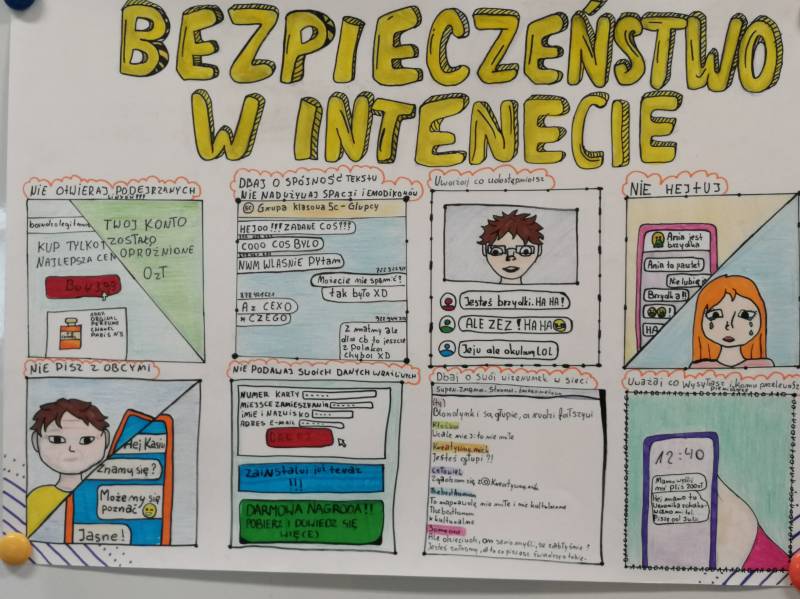 BEZPIECZEŃSTWO
W INTENECIE
NIE OTWIERAJ PODEJRZANYCH
KUP TYLKO
NAJLEPSZA CENA
100%
TWOJ KONTO
ZOSTAŁO
OPRÓŻNIONE
0 zł
DBAJ O SPÓJNOŚĆ TEKSTU
NIE NADUŻYWAJ SPACJI I EMODIKONÓW
5C Grupa klasowa 5c - Głupcy
HEJOO!!! ZADANE COŚ?!!!
COOO COS BYŁO
NWM WLASNIE PYTAM
Możecie nie spamić?
tak było XD
A z CEXO
* CZEGO
Z matmy ale
dla cb to jeszcze
z polaka
chyba XD
Uważaj co udostępniasz
Jesteś brzydki. HA HA!
ALE ZEZ! HA HA
Jeju ale okulary LOL
NIE HEJTUJ
Ania jest
brzydka
Ania to pasztet
Nie lubię
Brzydka!!
HA
NIE PISZ Z OBCYMI
Hej Kasiu
Znamy się?
Możemy się
poznać
Jasne!
NIE PODAWAJ SWOICH DANYCH WRAŻLIWYCH
NUMER KARTY
MIEJSCE ZAMIESZKANIA
IMIE I NAZWISKO
ADRES E-MAIL
ZAINSTALUJ JUŻ TERAZ
!!!
DARMOWA NAGRODA!!
POBIERZ I DOWIEDZ SIĘ
WIĘCEJ
Dbaj o swój wizerunek w sieci
Blondynki są głupie, a rudzi fałszywi
Wcale nie ;) to nie miłe
Kreatywny.nick
Jesteś głupi ?!
człowiek
Zgadzam się z @Kreatywny.nick
Thebesthuman
To naprawdę nie miłe i nie kulturalne
Thebesthuman
* kulturalne
Someone
Uważaj co wysyłasz i komu przelewasz
12:40
Mamo wyślij
mi plis 200zł
Hej mamo tu